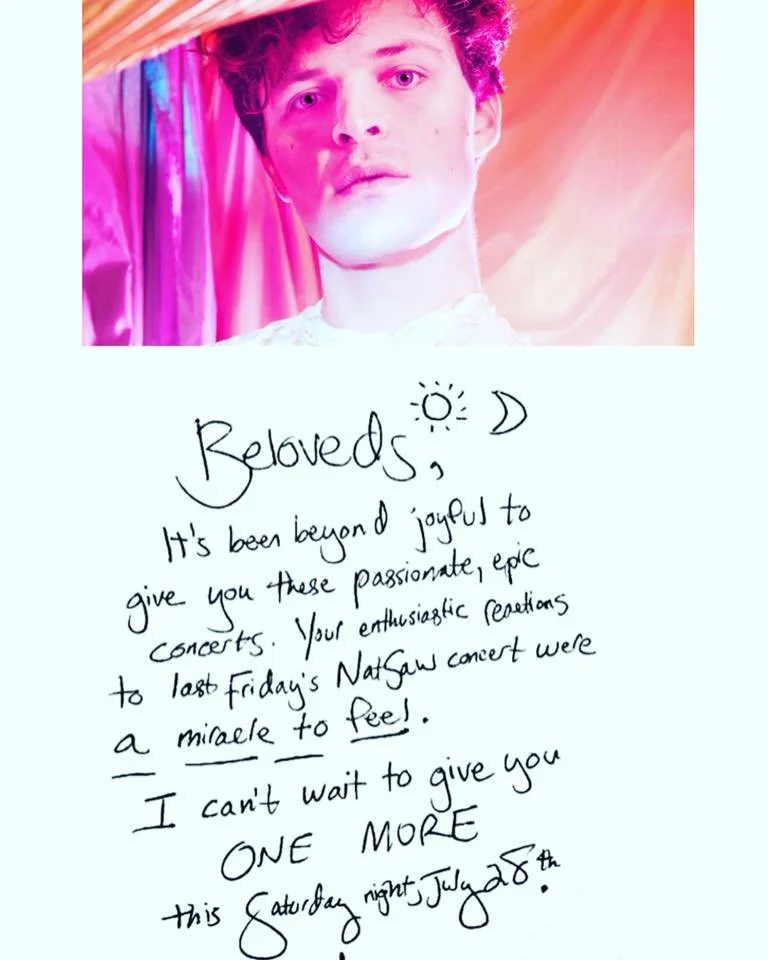 Beloveds,
It's been beyond joyful to
give you these passionate, epic
concerts. Your enthusiastic reactions
to last Friday's NatSaw concert were
a miracle to feel.
I can't wait to give you
ONE MORE
this Saturday night, July 28th.